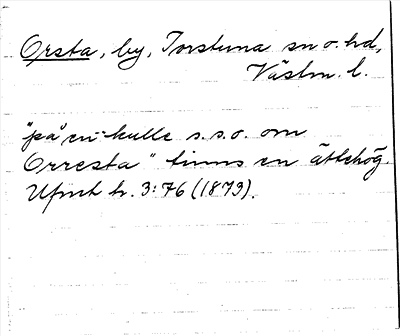 Orsta, by, Torstuna sn o. hd,
Västm. l.
"på en kulle s.s.o. om
Orresta" finns en ättehög.
Ufmt h. 3:76 (1873).